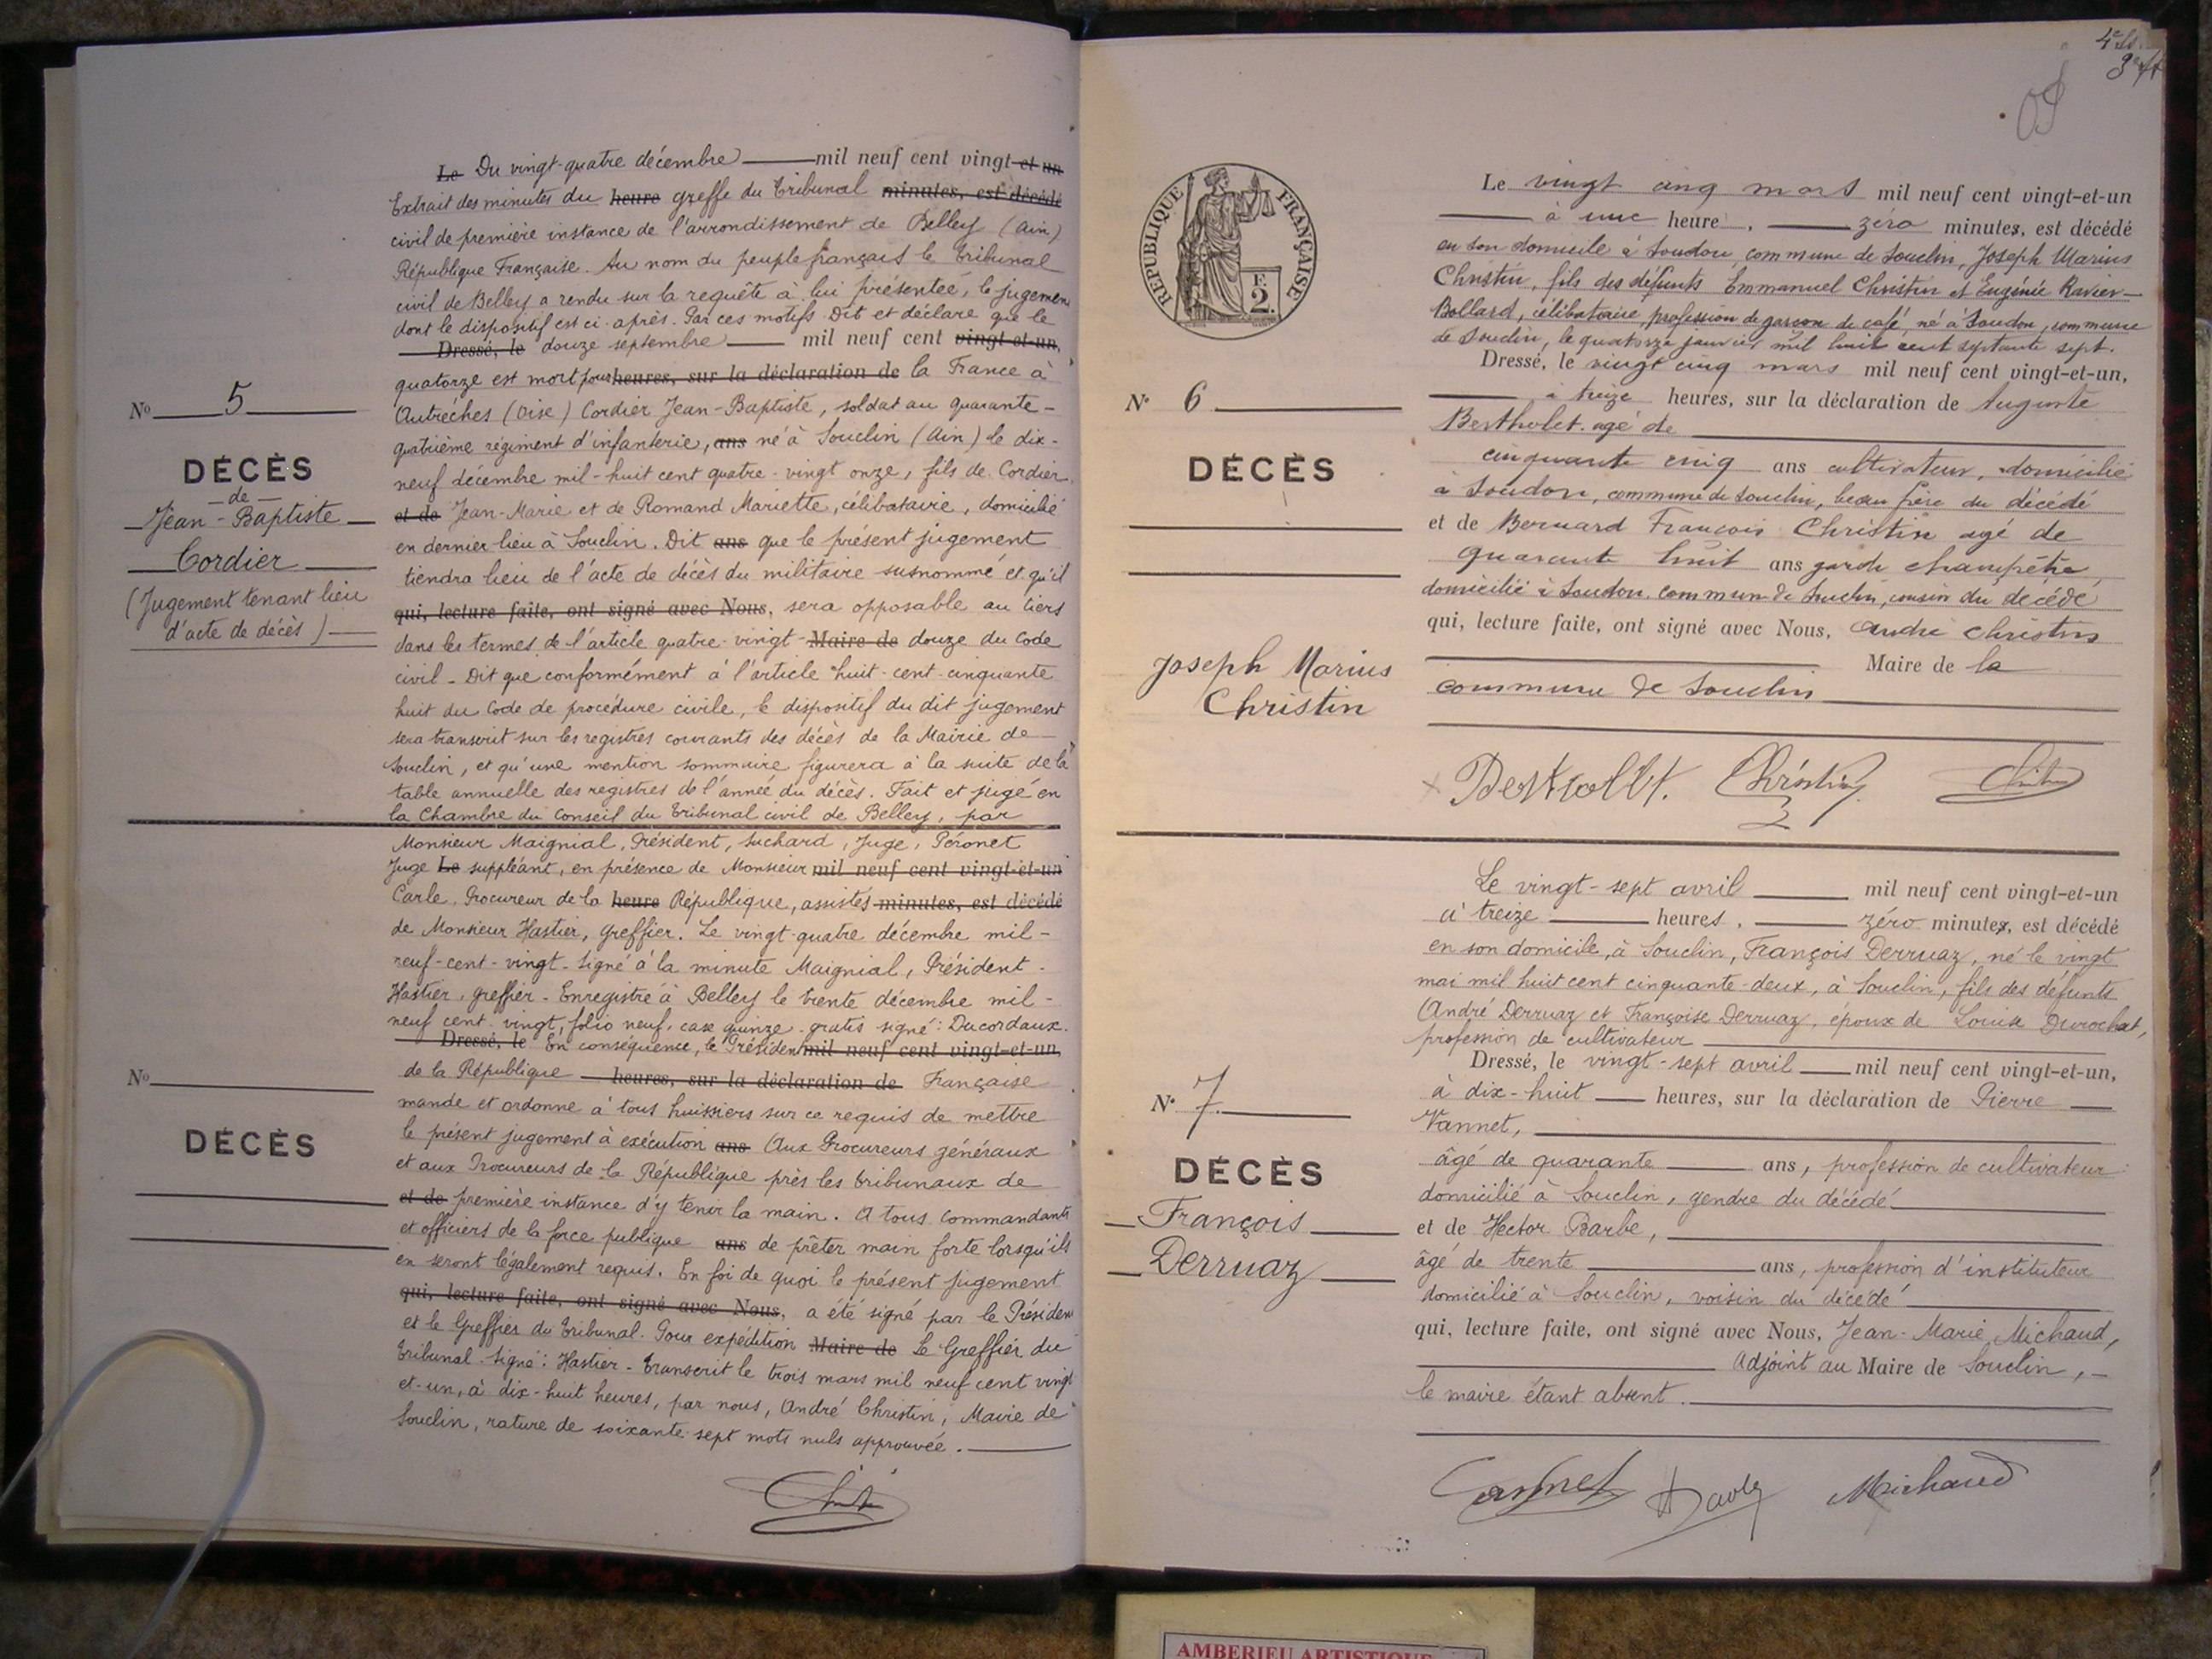 Le Du vingt-quatre décembre mil neuf cent vingt-et un
Extrait des minutes du heure greffe du Tribunal minutes, est décédé
civil de première instance de l'arrondissement de Belley (Ain)
République Française. Au nom du peuple français le Tribunal
civil de Belley a rendu sur la requête à lui présentée, le jugement
dont le dispositif est ci-après. Par ces motifs Dit et déclare que le
Dressé, le douze septembre mil neuf cent vingt-et-un,
quatorze est mort pour heures, sur la déclaration de la France à
Autrêches (Oise) Cordier Jean-Baptiste, soldat au quarante-
quatrième régiment d'infanterie, ans né à Souclin (Ain) le dix-
neuf décembre mil-huit cent quatre-vingt onze, fils de Cordier
et de Jean-Marie et de Romand Mariette, célibataire, domicilié
en dernier lieu à Souclin. Dit ans que le présent jugement
tiendra lieu de l'acte de décès du militaire susnommé et qu'il
qui, lecture faite, ont signé avec Nous, sera opposable au tiers
dans les termes de l'article quatre-vingt- Maire de douze du Code
civil - Dit que conformément à l'article huit-cent-cinquante
huit du Code de procédure civile, le dispositif du dit jugement
sera transcrit sur les registres courants des décès de la Mairie de
Souclin, et qu'une mention sommaire figurera à la suite de la
table annuelle des registres de l'année du décès. Fait et jugé en
la Chambre du Conseil du Tribunal civil de Belley, par
Nº 5
DÉCÈS
de
Jean-Baptiste
Cordier
(Jugement tenant lieu
d'acte de décès)
Monsieur Maignial, Président, Suchard, Juge, Péronet
Juge Le suppléant, en présence de Monsieur mil neuf cent vingt-et-un
Carle, Procureur de la heure République, assistés minutes, est décédé
de Monsieur Hastier, greffier. Le vingt-quatre décembre mil-
neuf-cent-vingt. Signé à la minute Maignial, Président.
Hastier, greffier - Enregistré à Belley le trente décembre mil-
neuf cent vingt, folio neuf, case quinze - gratis signé: Ducordaux.
Dressé, le En conséquence, le Président mil neuf cent vingt-et-un,
de la République heures, sur la déclaration de Française
mande et ordonne à tous huissiers sur ce requis de mettre
le présent jugement à exécution ans Aux Procureurs généraux
et aux Procureurs de la République près les tribunaux de
et de première instance d'y tenir la main. A tous commandants
et officiers de la force publique ans de prêter main forte lorsqu'ils
en seront légalement requis. En foi de quoi le présent jugement
qui, lecture faite, ont signé avec Nous, a été signé par le Président
et le Greffier du Tribunal. Pour expédition Maire de Le Greffier du
Tribunal. Signé: Hastier - Transcrit le trois mars mil neuf cent vingt
et-un, à dix-huit heures, par nous, André Christin, Maire de
Souclin, rature de soixante-sept mots nuls approuvée.
Nº
DÉCÈS
RÉPUBLIQUE FRANÇAISE
F.
2.
Le vingt cinq mars mil neuf cent vingt-et-un
à une heure, zéro minutes, est décédé
en son domicile à Soudon, commune de Souclin, Joseph Marius
Christin, fils des défunts Emmanuel Christin et Eugénie Ravier-
Bollard, célibataire, profession de garçon de café, né à Soudon, commune
de Souclin, le quatorze janvier mil huit cent septante sept.
Dressé, le vingt cinq mars mil neuf cent vingt-et-un,
à treize heures, sur la déclaration de Auguste
Bertholet. agé de
cinquante cinq ans cultivateur, domicilié
à Soudon, commune de Souclin, beau frère du décédé
et de Bernard François Christin agé de
quarante huit ans garde champêtre
domicilié à Soudon commune de Souclin, cousin du décédé
qui, lecture faite, ont signé avec Nous, André Christin
Maire de la
commune de Souclin
Nº 6
DÉCÈS
Joseph Marius
Christin
Christin
Le vingt-sept avril mil neuf cent vingt-et-un
à treize heures, zéro minutes, est décédé
en son domicile, à Souclin, François Derruaz, né le vingt
mai mil huit cent cinquante-deux, à Souclin, fils des défunts
André Derruaz et Françoise Derruaz, époux de Louise Durochat,
profession de cultivateur
Dressé, le vingt-sept avril mil neuf cent vingt-et-un,
à dix-huit heures, sur la déclaration de Pierre
Vannet,
âgé de quarante ans, profession de cultivateur
domicilié à Souclin, gendre du décédé
et de Hector Barbe,
âgé de trente ans, profession d'instituteur
domicilié à Souclin, voisin du décédé
qui, lecture faite, ont signé avec Nous, Jean-Marie Michaud,
Adjoint au Maire de Souclin,
le maire étant absent.
Nº 7
DÉCÈS
François
Derruaz
Michaud
AMBERIEU ARTISTIQUE